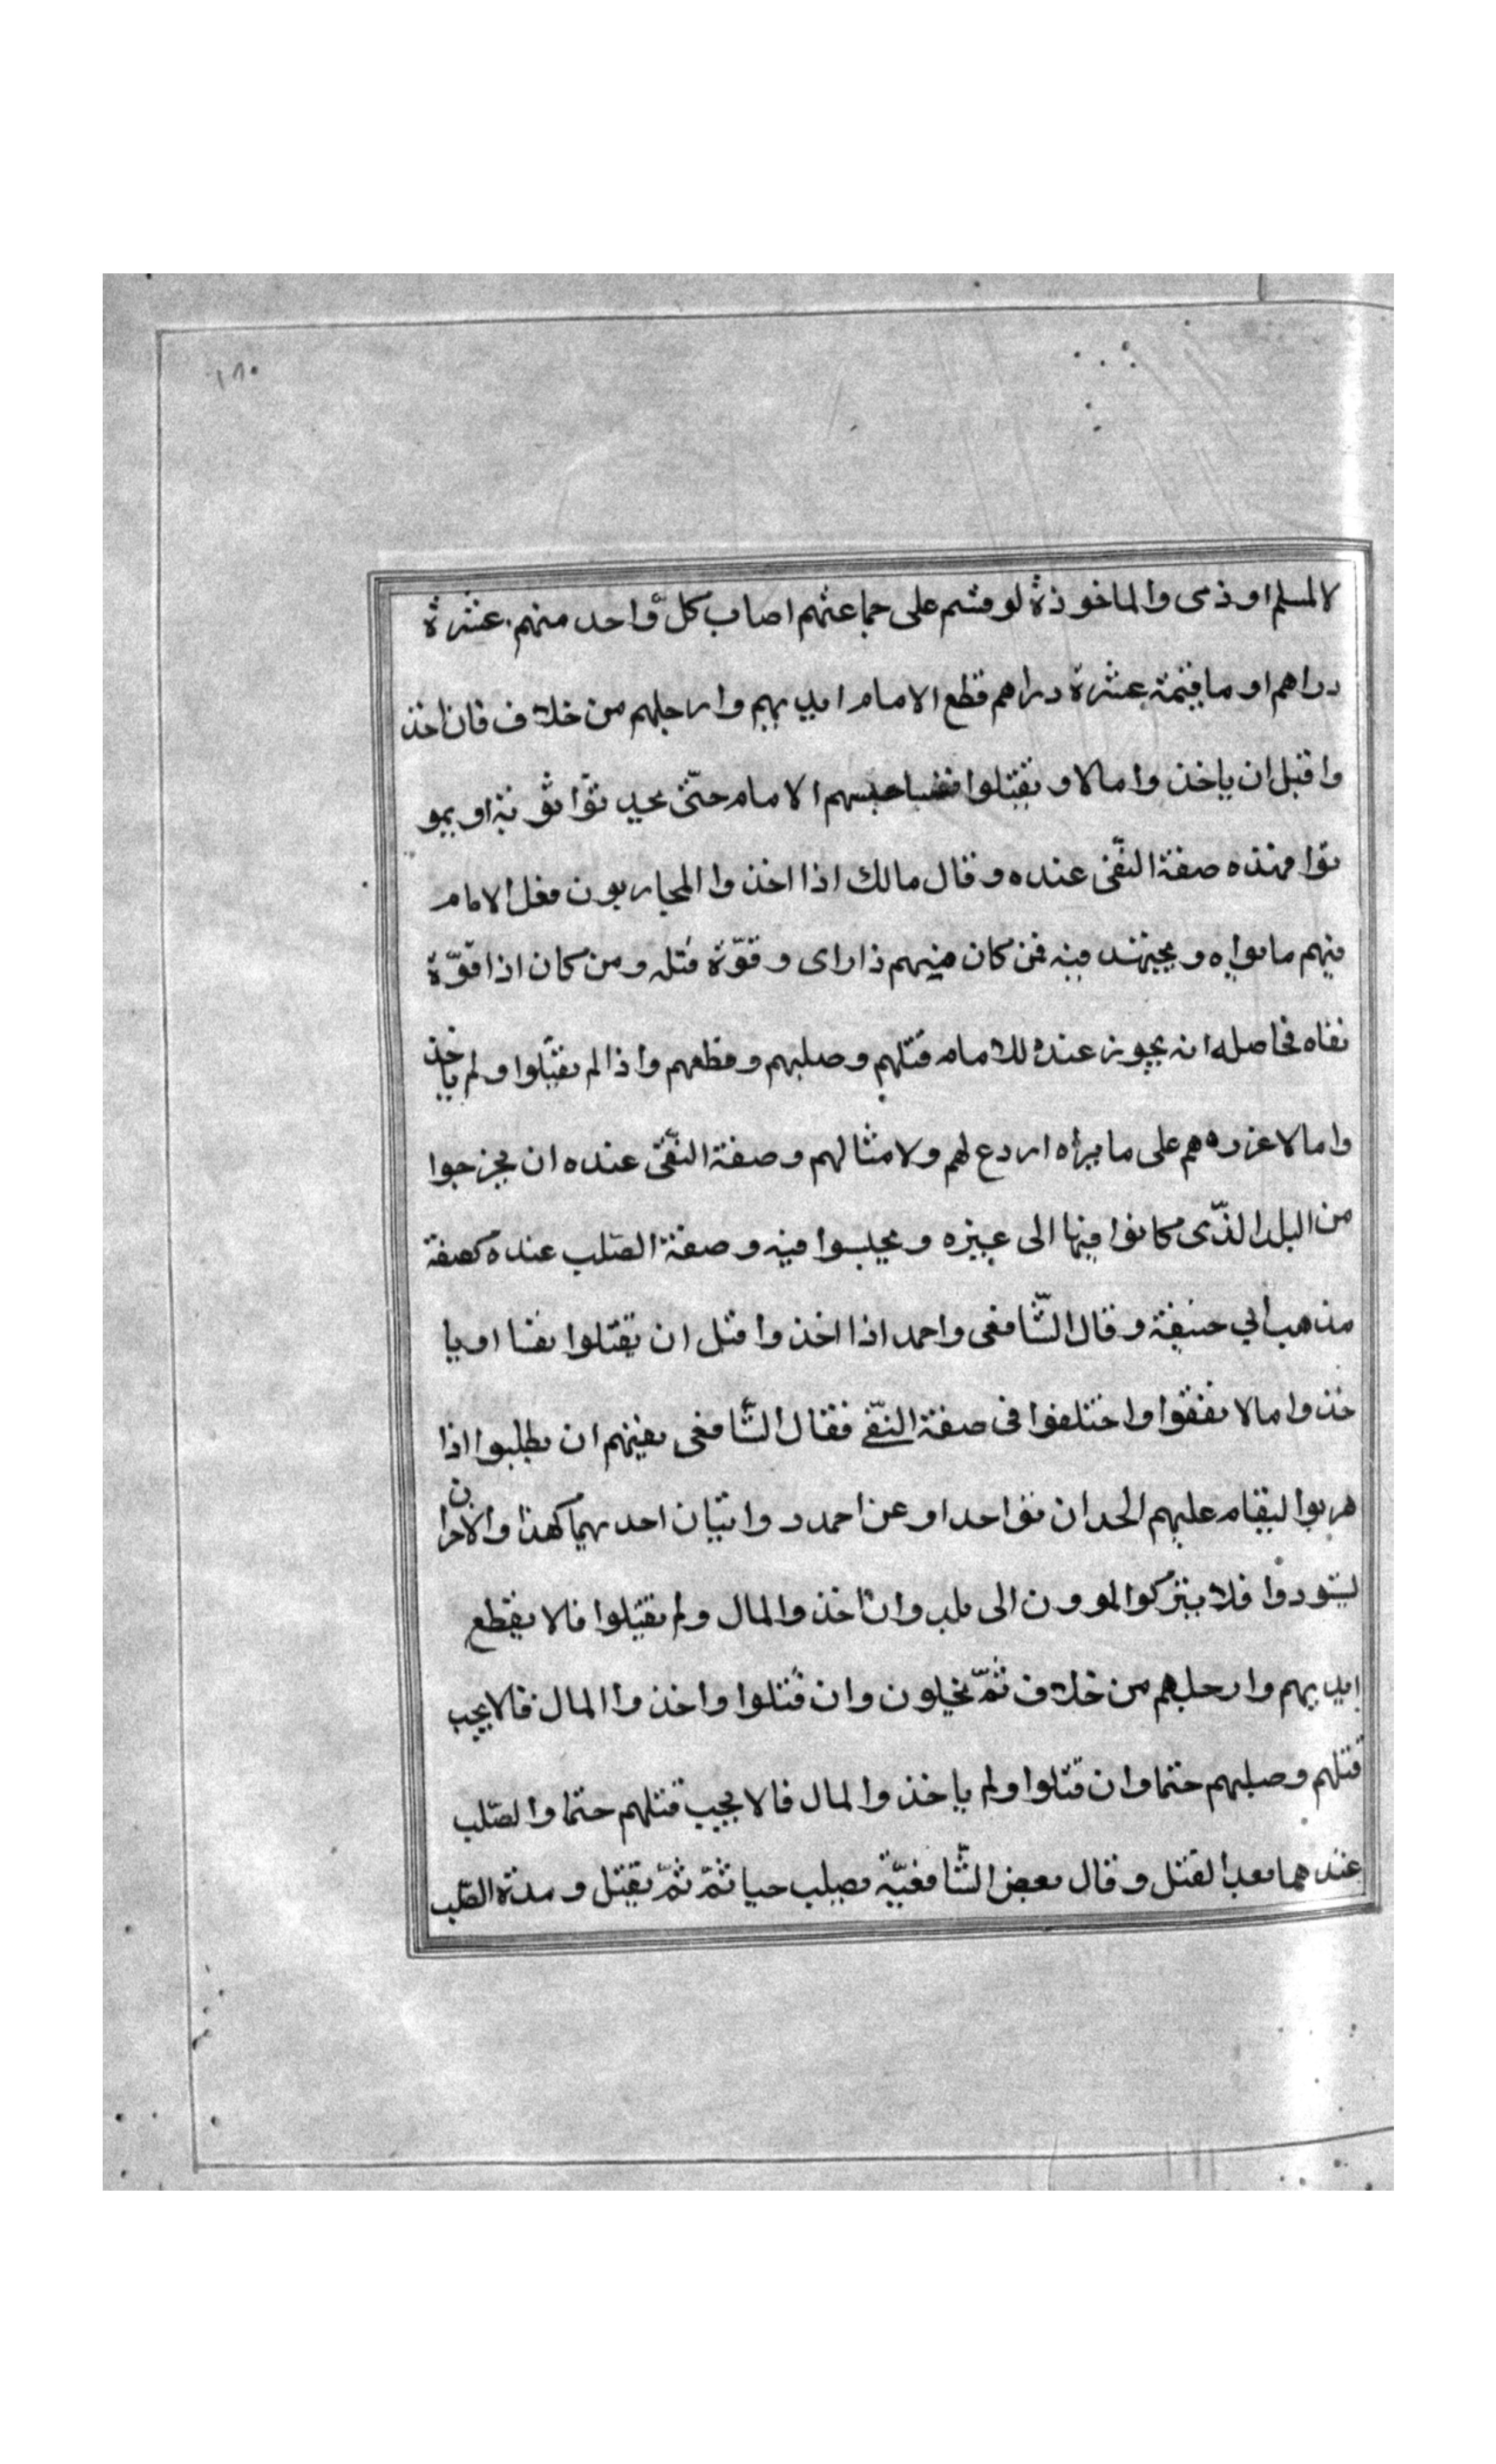 ١٨٠
لا لمسلم او ذمى والماخوذة لو قسم على جماعتهم اصاب كل واحد منهم عشرة
دراهم او ما قيمة عشرة دراهم قطع الامام ايديهم وارجلهم من خلاف فان اخذ
وا قبل ان ياخذ وا مالا و يقتلوا نفسا حبسهم الامام حتّى يحد توا تو بة او يمو
توا فهذه صفة النّفى عنده و قال مالك اذا اخذ وا المحاربون فعل الامام
فيهم ما يراه و يجتهد فيه فمن كان منهم ذا راى و قوّة قتله و من كان اذا قوّة
نفاه فحاصله انه يجوز عنده للامام قتلهم و صلبهم و قطعهم واذا لم يقتلوا و لم ياخذ
وا مالا عزرهم على ما يراه اردع لهم ولامثالهم و صفة النّفى عنده ان يخرجوا
من البلد الذّى كانوا فيها الى غيره و يحبسوا فيه و صفة الصّلب عنده كصفة
مذهب أبي حنيفة و قال الشّافعى واحمد اذا اخذ وا قبل ان يقتلوا نفسا او يا
خذ وا مالا نفقوا واختلفوا فى صفة النّفى فقال الشّافعى نفيهم ان يطلبوا اذا
هربوا ليقام عليهم الحد ان تو احدا و عن احمد ر وايتان احد يهما كهذا والاخران
يشردوا فلا يتركوا ن الى بلد وان اخذ والمال ولم يقتلوا فالا يقطع
ايديهم وارجلهم من خلاف ثمّ يخلون وان قتلوا واخذ وا المال فالا يجب
قتلهم و صلبهم حتما وان قتلوا ولم ياخذ والمال فالا يجب قتلهم حتما والصّلب
عندهما بعد القتل و قال بعض الشّافعيّة يصلب حيا ثمّ ثمّ يقتل و مدة الصّلب